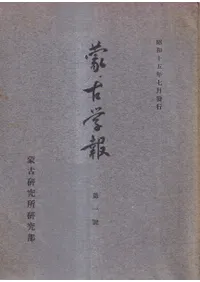 昭和十五年七月發行
蒙古学報
第一號
蒙古研究所研究部